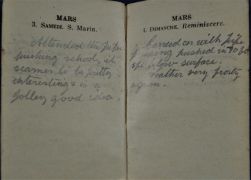 MARS
3. SAMEDI. S. Marin.
Attended the
pushing school, it
seemed to be pretty
interesting & is a
jolley good idea.
MARS
4. DIMANCHE. Reminiscere.
carried on with
being pushed in to
surface.
rather very frosty
again.